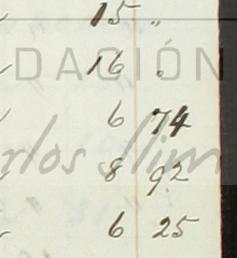 15 "
DACIÓN
16 .
6 74
arlos Slim
8 92
6 25